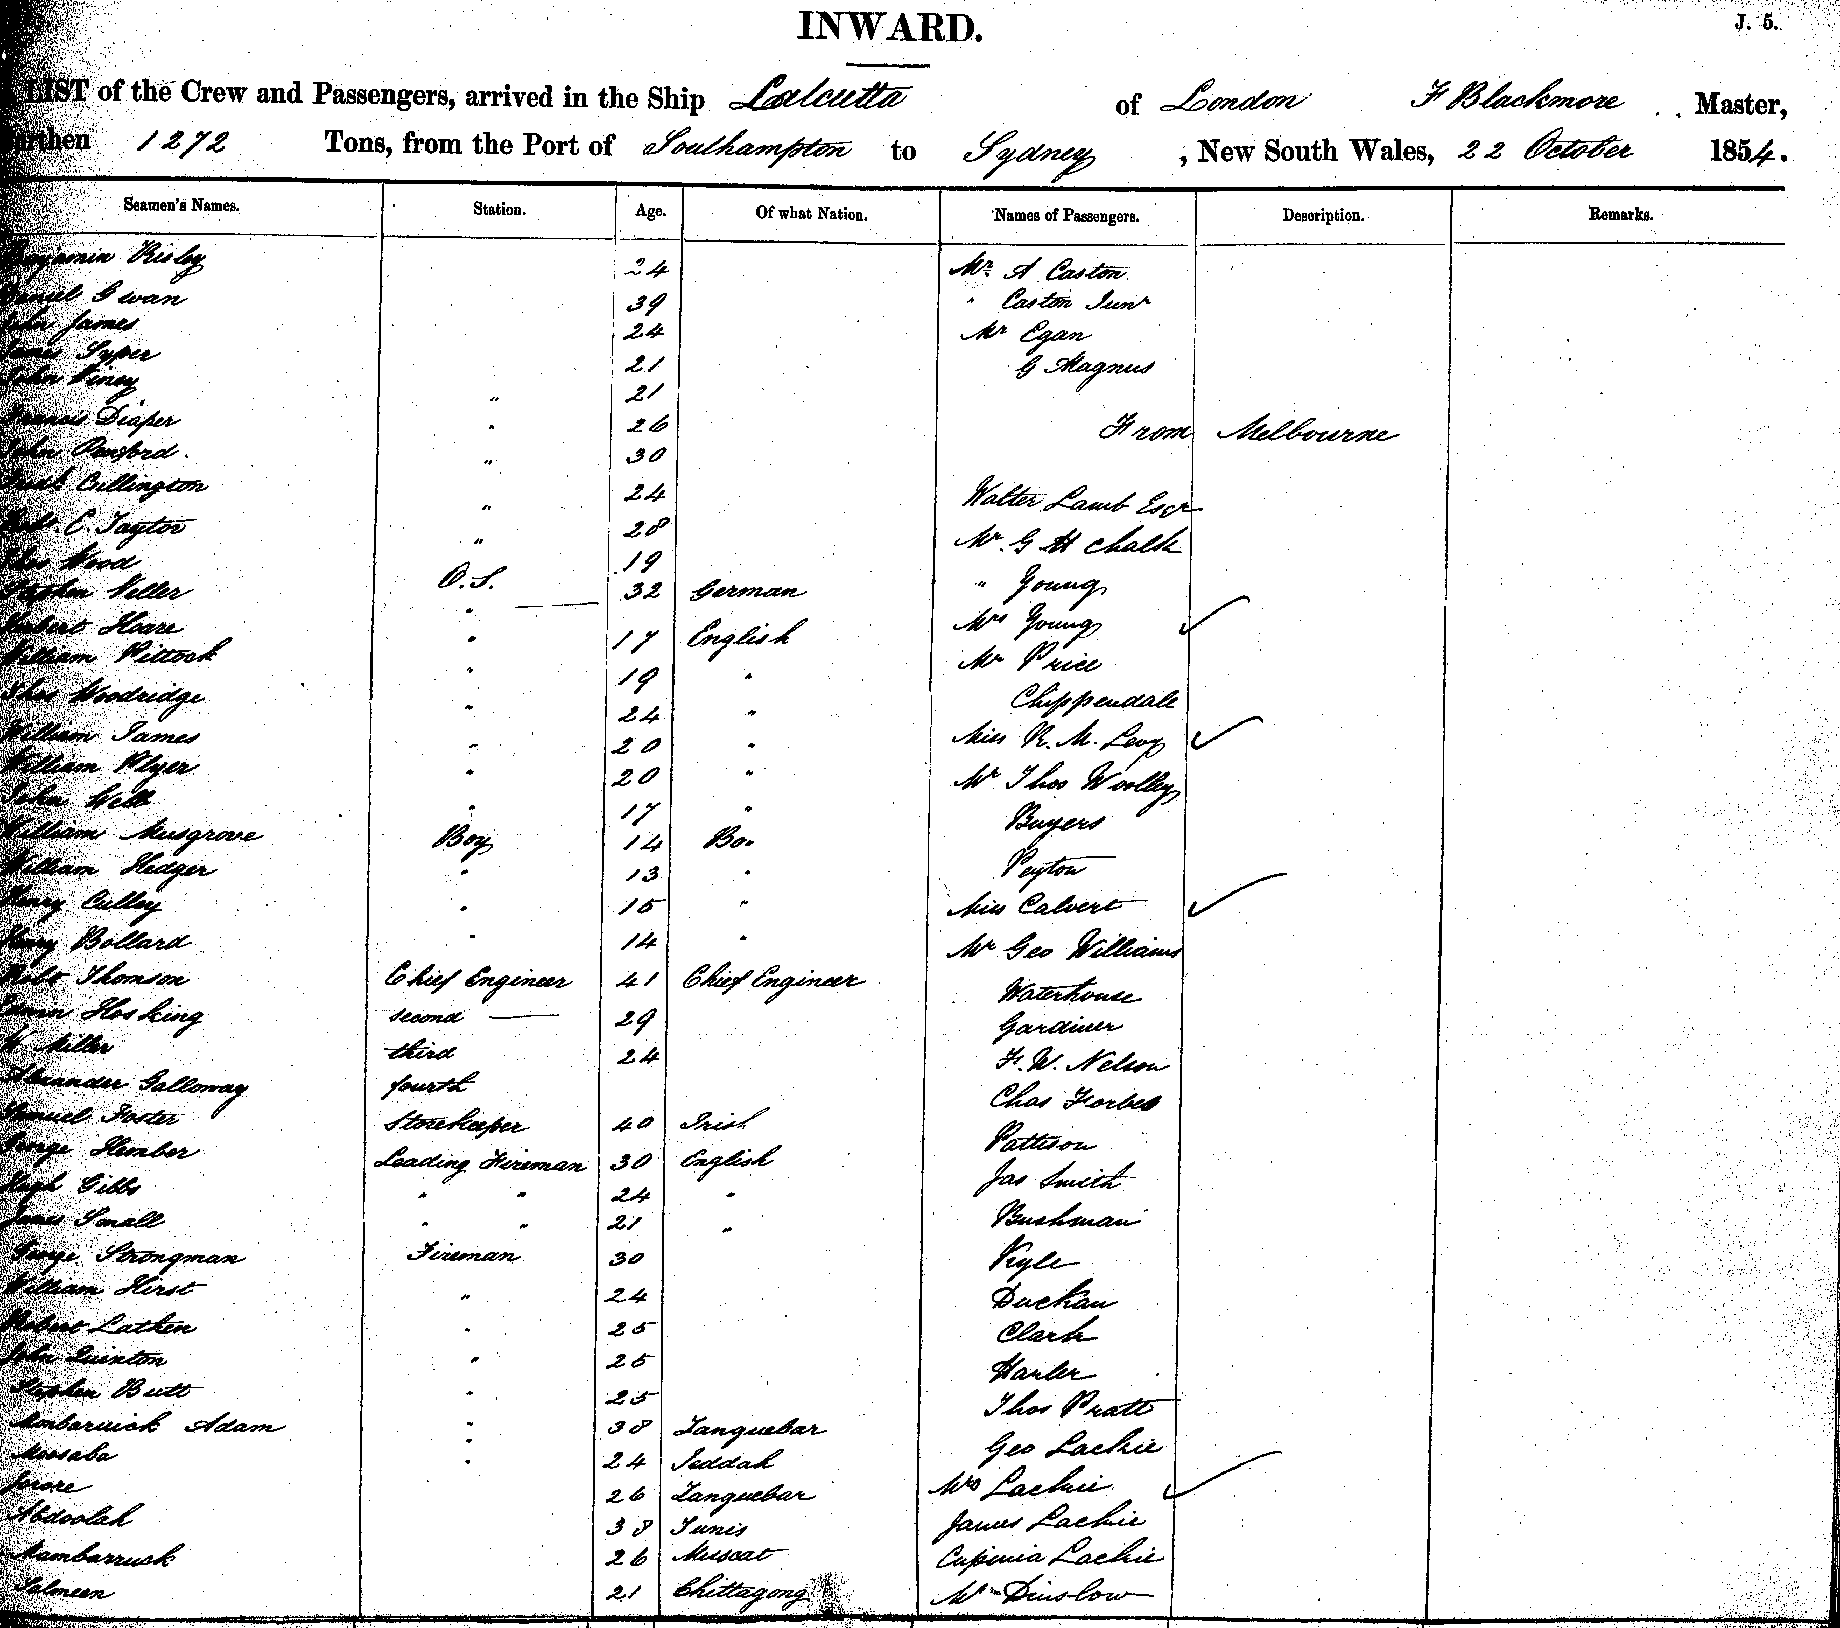 INWARD.
J. 5.
LIST of the Crew and Passengers, arrived in the Ship Calcutta of London F Blackmore Master,
1272 Tons, from the Port of Southampton to Sydney, New South Wales, 22 October 1854.
Seamen's Names. Station. Age. Of what Nation. Names of Passengers. Description. Remarks.
Benjamin Risley 24 Mr A Caston
Daniel Gwan 39 " Caston Junr
John James 24 Mr Egan
James Syper 21 G Magnus
John Viney " 21
Diaper " 26 From Melbourne
John Ransford " 30
Cullington " 24 Walter Lamb Esqr
C. Taylor " 28 Mr G H Chalk
Thos Wood O.S. 19 " Young
Stephen Neller " 32 German Mrs Young
Robert Hoare " 17 English Mr Price
William Pittock " 19 " Chippendale
Thos Woodridge " 24 " Miss R. M. Levy
William James " 20 " Mr Thos Woolley
William Plyer " 20 " Buyers
John Webb " 17 " Peyton
William Musgrove Boy 14 Bo. Miss Calvert
William Hedger " 13 " Mr Geo Williams
Henry Culley " 15 " Waterhouse
Henry Bollard " 14 " Gardiner
Robt Thomson Chief Engineer 41 Chief Engineer F. W. Nelson
Hosking second 29 Chas Forbes
W Miller third 24 Pattison
Alexander Galloway fourth Jas Smith
Samuel Foster Storekeeper 40 Irish Bushman
George Hember Leading Fireman 30 English Kyle
Hugh Gibbs " " 24 " Duckan
James Small " " 21 " Clark
George Strongman Fireman 30 Harler
William Hirst " 24 Thos Pratt
Robert Lathen " 25 Geo Lackie
John Quinton " 25 Mrs Lackie
Stephen Butt " 25 James Lackie
Ambarrick Adam " 38 Zanguebar Lackie
Moosaba " 24 Jeddah Mr Dinslow
Jerore " 26 Zanguebar
Abdoolah 38 Tunis
Mambarruck 26 Muscat
Salmeen 21 Chittagong